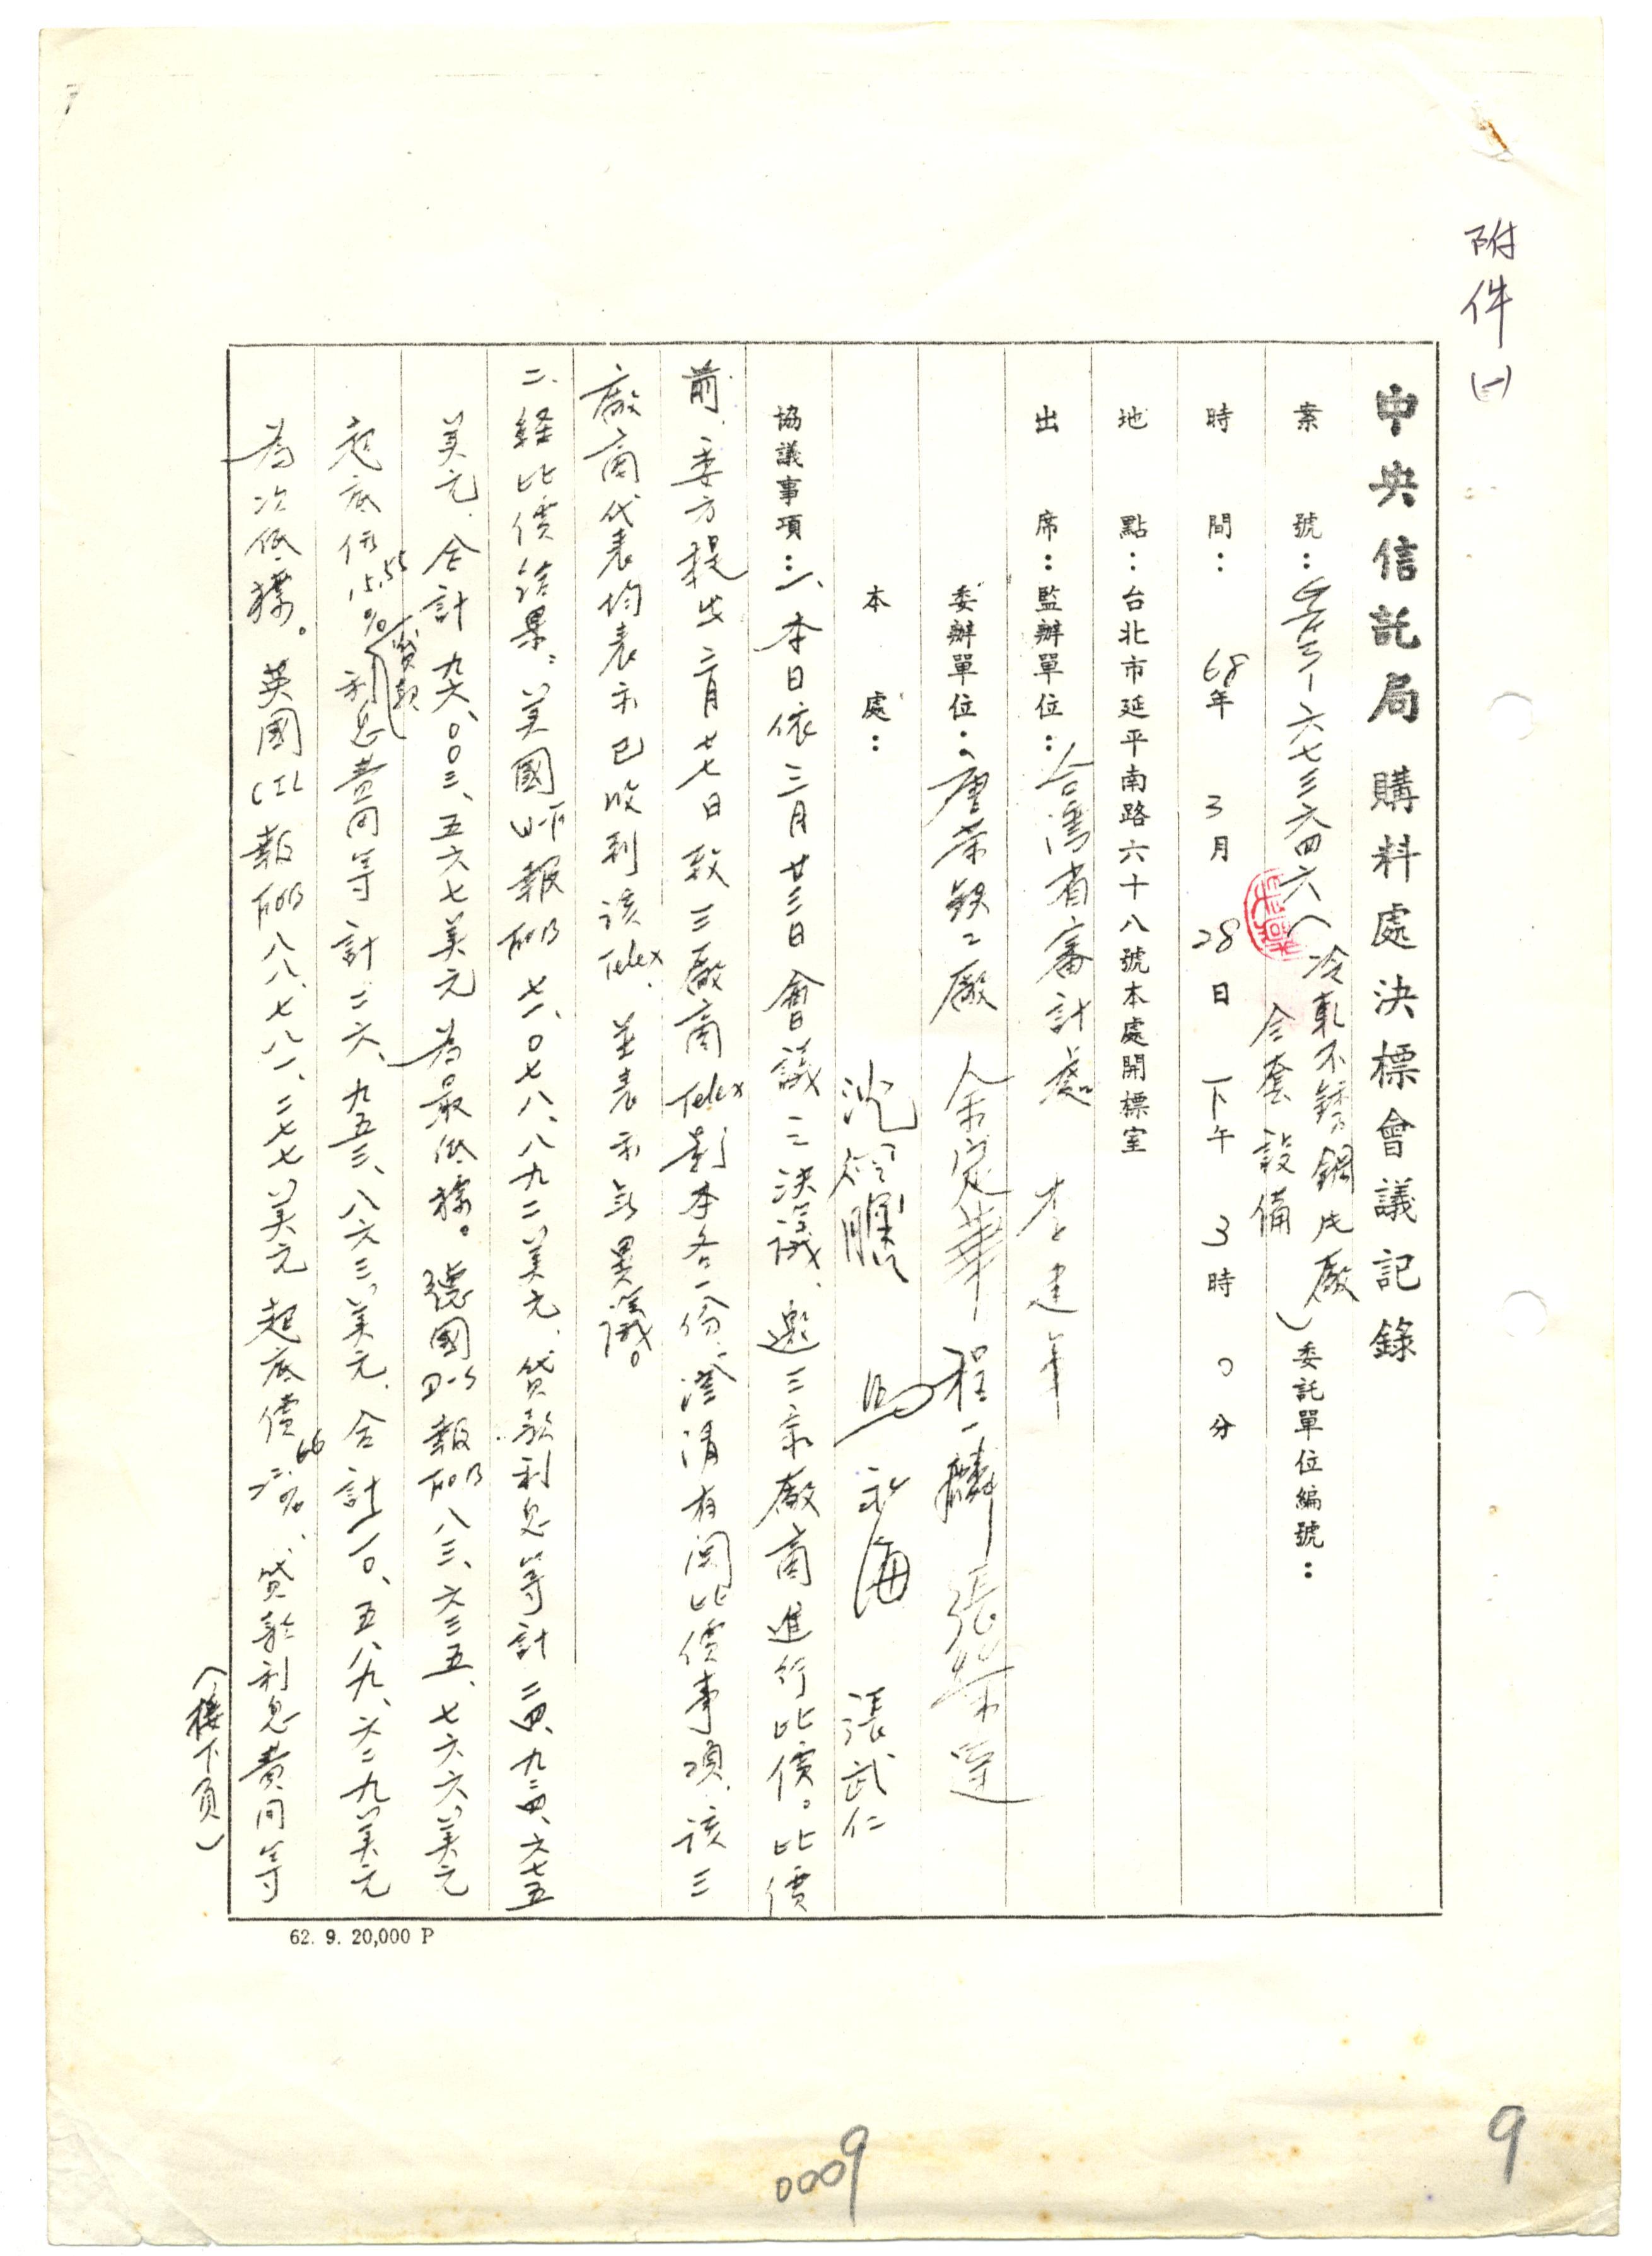 附件(一)
中央信託局購料處決標會議記錄
案號：六七三六四六(冷軋不銹鋼片廠全套設備)委託單位編號：
時間：68年3月28日下午3時0分
地點：台北市延平南路六十八號本處開標室
出席：監辦單位：台灣省審計處 李建年
委辦單位：唐榮鉄工廠 余定華 程一麟 張
本處： 沈 馬永海 張武仁
協議事項：一、本日依三月廿三日會議之決議、邀三家廠商進行比價。比價
前、委方提出三月廿七日致三廠商Telex影本各一份、澄清有関比價事項、該三
廠商代表均表示已收到該Telex、並表示無異議。
二、経比價結果：美國W-F報FOB七一、〇七八、八九二美元、貸款利息等計二四、九二四、六七五
美元、合計九六、〇〇三、五六七美元為最低標。德國D-S報FOB八三、六三五、七六六美元
超底価15.55%貸款利息費用等計二六、九五三、八六三美元、合計一一〇、五八九、六二九美元
為次低標。英國CIL報FOB八八、七八一、二七七美元超底價二二.66%、貸款利息費用等
(接下頁)
62. 9. 20,000 P
0009
9